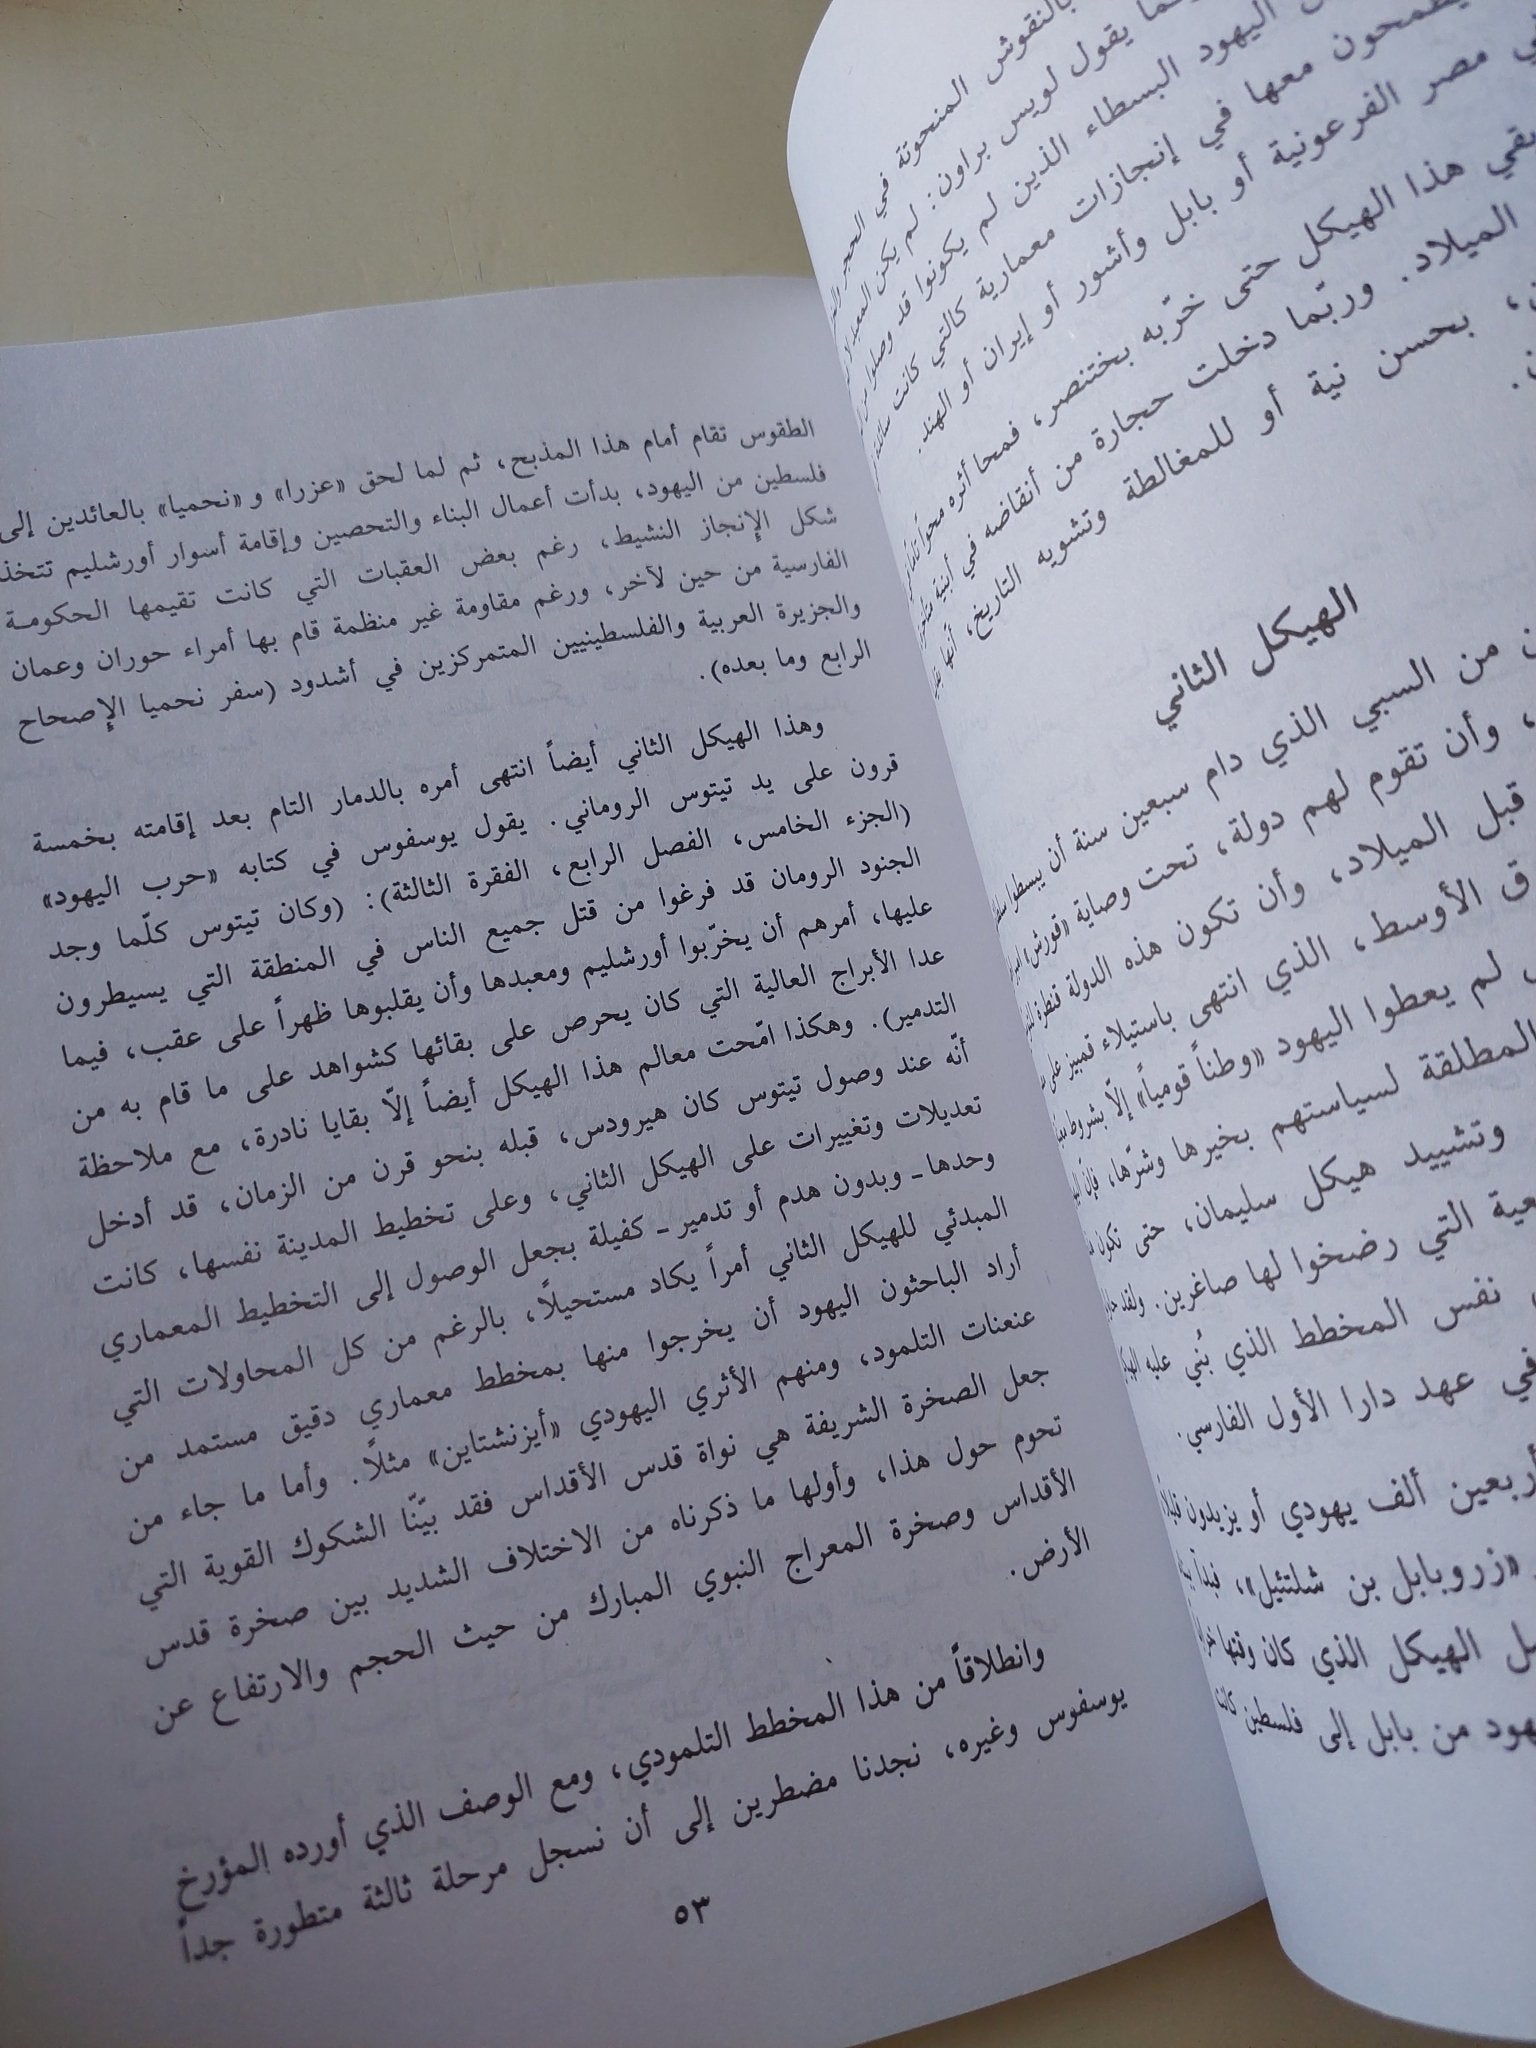 بالنقوش المنحوتة في الحجر
يقول لويس براون: لم يكن المعبد
اليهود البسطاء الذين لم يكونوا قد وصلوا من
يطمحون معها في إنجازات معمارية كالتي كانت
مصر الفرعونية أو بابل وأشور أو إيران أو الهند.
هذا الهيكل حتى خرّبه بختنصر، فمحا أثره محواً
الميلاد. وربّما دخلت حجارة من أنقاضه في أبنية
بحسن نية أو للمغالطة وتشويه التاريخ، أنها
الهيكل الثاني
من السبي الذي دام سبعين سنة أن يبسطوا
وأن تقوم لهم دولة، تحت وصاية «قورش»
قبل الميلاد، وأن تكون هذه الدولة قنطرة
الأوسط، الذي انتهى باستيلاء قمبيز على
لم يعطوا اليهود «وطناً قومياً» إلّا بشروط
المطلقة لسياستهم بخيرها وشرّها، فإنّ
وتشييد هيكل سليمان، حتى تكون
التي رضخوا لها صاغرين. ولقد
نفس المخطط الذي بُني عليه
في عهد دارا الأول الفارسي.
أربعين ألف يهودي أو يزيدون
«زروبابل بن شلتئيل»، فبدأ
الهيكل الذي كان وقتها
من بابل إلى فلسطين كانت
الطقوس تقام أمام هذا المذبح، ثم لما لحق «عزرا» و «نحميا» بالعائدين إلى
فلسطين من اليهود، بدأت أعمال البناء والتحصين وإقامة أسوار أورشليم تتخذ
شكل الإنجاز النشيط، رغم بعض العقبات التي كانت تقيمها الحكومة
الفارسية من حين لآخر، ورغم مقاومة غير منظمة قام بها أمراء حوران وعمان
والجزيرة العربية والفلسطينيين المتمركزين في أشدود (سفر نحميا الإصحاح
الرابع وما بعده).
وهذا الهيكل الثاني أيضاً انتهى أمره بالدمار التام بعد إقامته بخمسة
قرون على يد تيتوس الروماني. يقول يوسفوس في كتابه «حرب اليهود»
(الجزء الخامس، الفصل الرابع، الفقرة الثالثة): (وكان تيتوس كلّما وجد
الجنود الرومان قد فرغوا من قتل جميع الناس في المنطقة التي يسيطرون
عليها، أمرهم أن يخرّبوا أورشليم ومعبدها وأن يقلبوها ظهراً على عقب، فيما
عدا الأبراج العالية التي كان يحرص على بقائها كشواهد على ما قام به من
التدمير). وهكذا امّحت معالم هذا الهيكل أيضاً إلّا بقايا نادرة، مع ملاحظة
أنّه عند وصول تيتوس كان هيرودس، قبله بنحو قرن من الزمان، قد أدخل
تعديلات وتغييرات على الهيكل الثاني، وعلى تخطيط المدينة نفسها، كانت
وحدها ـ وبدون هدم أو تدمير ـ كفيلة بجعل الوصول إلى التخطيط المعماري
المبدئي للهيكل الثاني أمراً يكاد مستحيلاً، بالرغم من كل المحاولات التي
أراد الباحثون اليهود أن يخرجوا منها بمخطط معماري دقيق مستمد من
عنعنات التلمود، ومنهم الأثري اليهودي «أيزنشتاين» مثلاً. وأما ما جاء من
جعل الصخرة الشريفة هي نواة قدس الأقداس فقد بيّنّا الشكوك القوية التي
تحوم حول هذا، وأولها ما ذكرناه من الاختلاف الشديد بين صخرة قدس
الأقداس وصخرة المعراج النبوي المبارك من حيث الحجم والارتفاع عن
الأرض.
وانطلاقاً من هذا المخطط التلمودي، ومع الوصف الذي أورده المؤرخ
يوسفوس وغيره، نجدنا مضطرين إلى أن نسجل مرحلة ثالثة متطورة جداً
٥٣